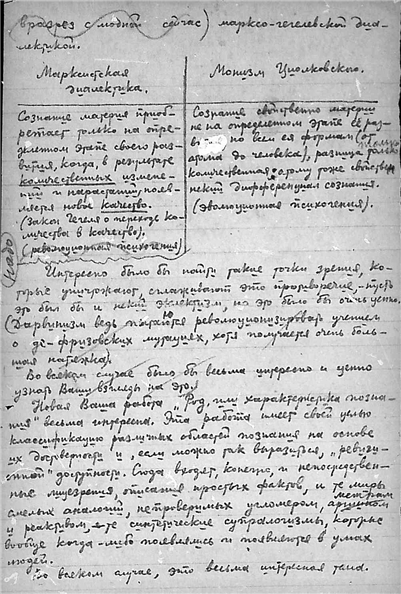 вразрез с модной сейчас) марксо-гегелевской диа-
лектикой.
Марксистская
диалектика.
Монизм Циолковского.
Сознание материя приоб-
ретает только на опре-
деленном этапе своего раз-
вития, когда, в результате
количественных измене-
ний и нарастаний, появ-
ляется новое качество.
(Закон Гегеля о переходе ко-
личества в качество).
(революционная психогения)
Сознание свойственно материи
не на определенном этапе её раз-
вития, но всем ея формам (от
атома до человека), разница только
количественная: атому тоже свойствен
некий дифференциал сознания.
(эволюционная психогения).
надо
Интересно было бы найти такие точки зрения, ко-
торые уничтожают, сглаживают это противоречие,
это был бы и некий эклектизм, но это было бы очень ценно.
(Дарвинизм ведь пытаются революционизировать учением
о де-фризовских мутациях, хотя получается очень боль-
шая натяжка).
Во всяком случае было бы весьма интересно и ценно
узнать Ваши взгляды на это.
Новая Ваша работа "Род, или характеристика позна-
ния" весьма интересна. Эта работа имеет своей целью
классификацию различных областей познания на основе
их достоверности и, если можно так выразиться, "ревизи-
онной" доступности. Сюда входят, конечно, и непосредствен-
ные лицезрения, описания простых фактов, и те миры
смелых аналогий, непроверимых угломером, аршином метрам
и реактивом, те синтетические супралогизмы, которые
вообще когда-либо появлялись и появляются в умах
людей.
Во всяком случае, это весьма интересная тема.